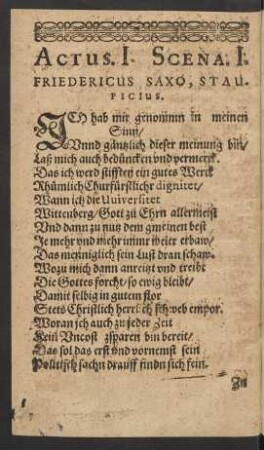 ACTUS. I. SCENA. I.
FRIEDERICUS SAXO, STAU-
PICIUS.
ICH hab mir genommn in meinen
Sinn/
Vnnd gäntzlich dieser meinung bin/
Laß mich auch bedüncken vnd vermerck.
Das ich werd stifften ein gutes Werck
Rhümlich Churfürstlichr dignitet/
Wann ich die Vniversitet
Wittenberg/ Gott zu Ehrn allermeist
Vnd dann zu nutz dem gmeinen best
Je mehr vnd mehr immr weier erbaw/
Das menniglich sein Lust dran schaw.
Wozu mich dann anreitzt vnd treibt
Die Gottes forcht/ so ewig bleibt/
Damit selbig in gutem flor
Stets Christlich herrlich schweb empor.
Woran ich auch zu jeder Zeit
Kein Vncost zsparen bin bereit/
Das sol das erst vnd vornemst sein
Politisch sachn drauff findn sich fein.
Zu